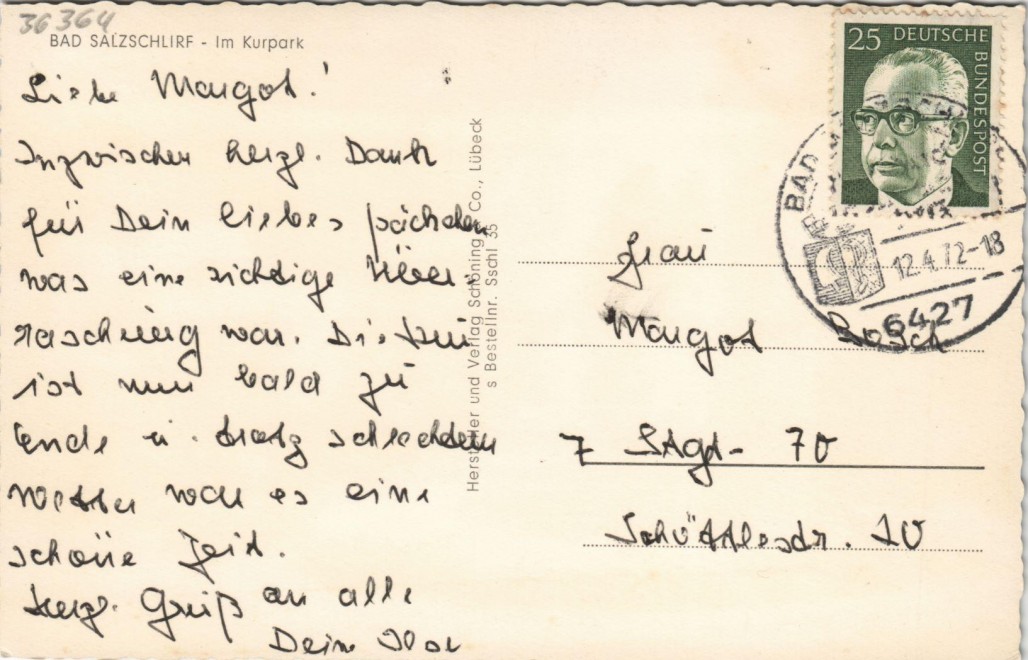 36364
BAD SALZSCHLIRF - Im Kurpark
Liebe Margot!
Inzwischen herzl. Dank
für Dein liebes päckchen
was eine richtige Über-
raschung war. Die Kur
ist nun bald zu
Ende u. trotz schlechtem
Wetter war es eine
schöne Zeit.
Herzl. Gruß an alle
Deine Ilse
Hersteller und Verlag Schöning & Co., Lübeck
s Bestellnr. Sschl 35
25 DEUTSCHE
BUNDESPOST
BAD
12.4.72-18
6427
Frau
Margot Bosch
7 Stgt- 70
Schöttlestr. 10